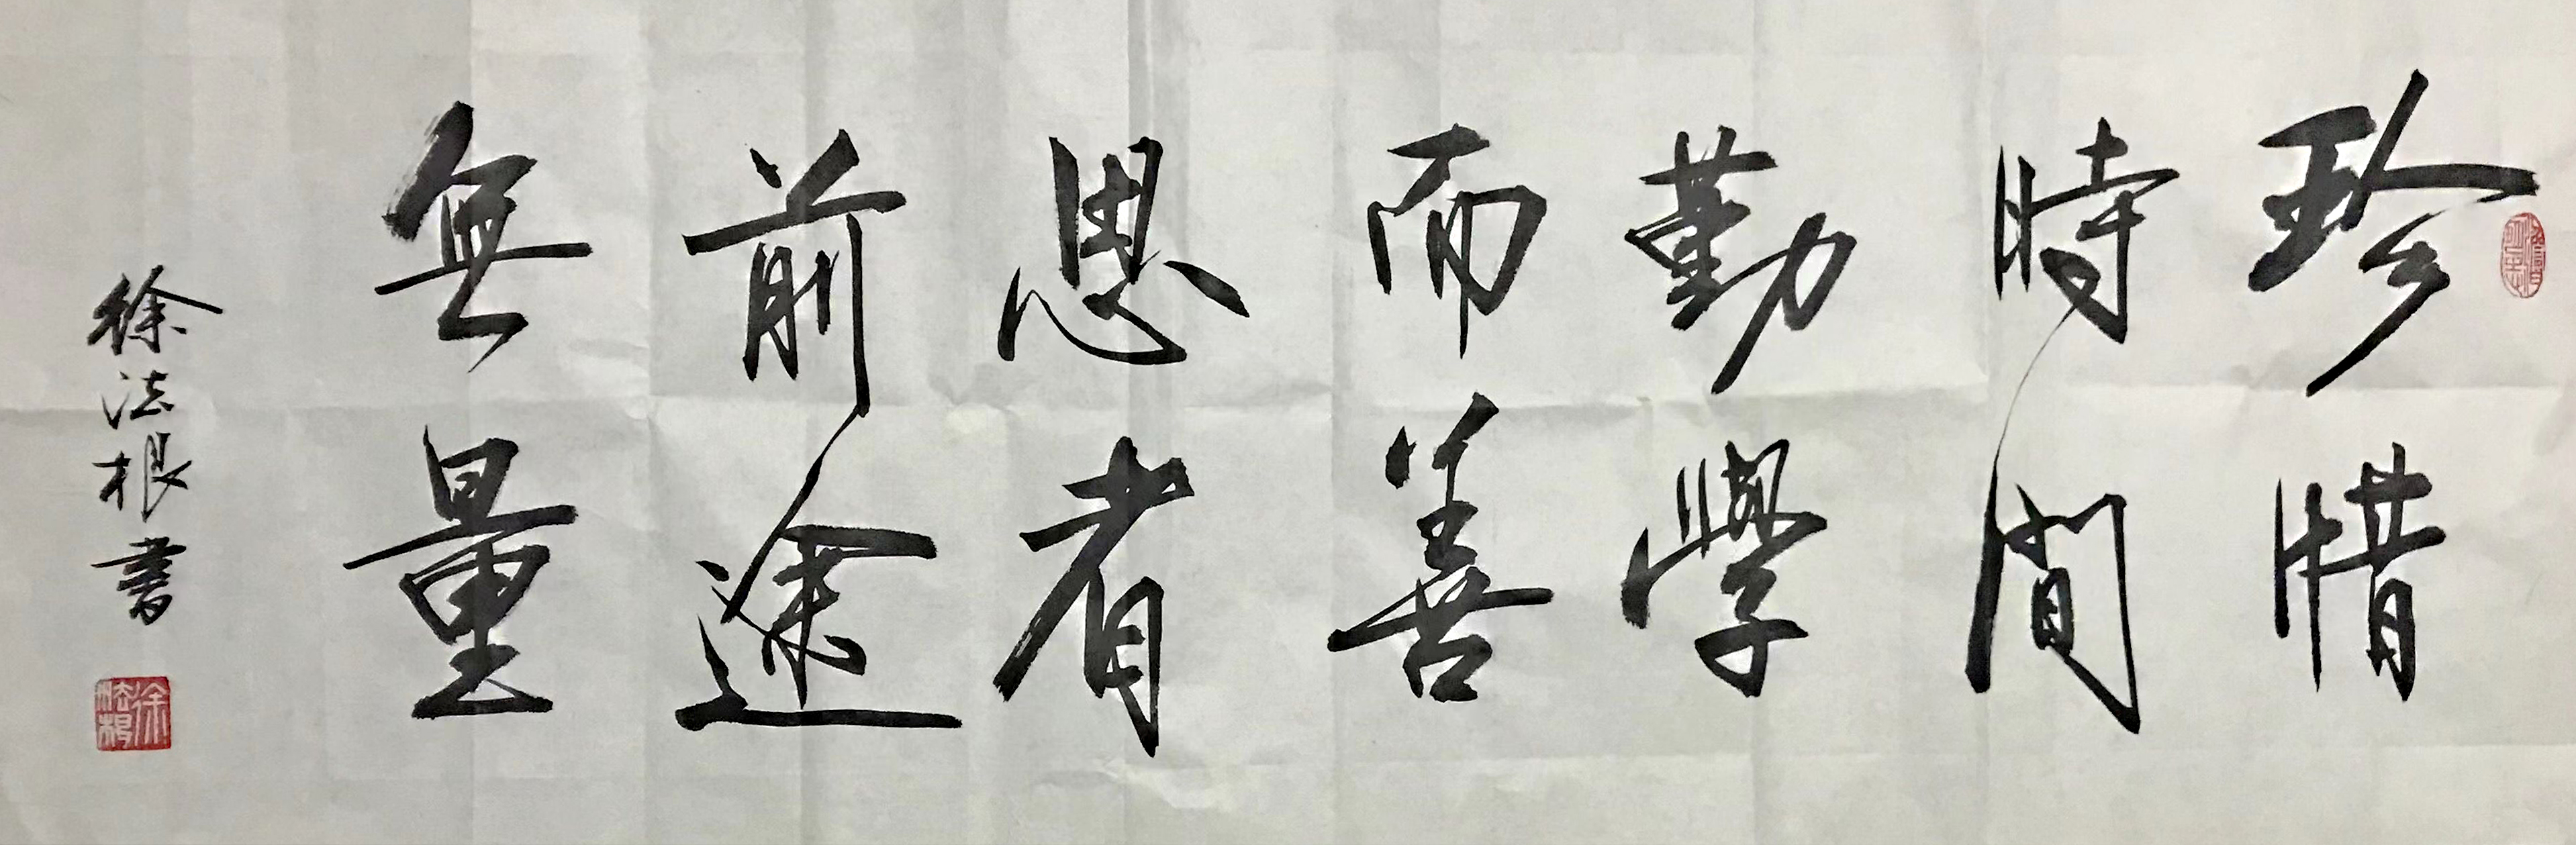 珍惜
時間
勤學
而善
思者
前途
無量
徐法根書
徐法根